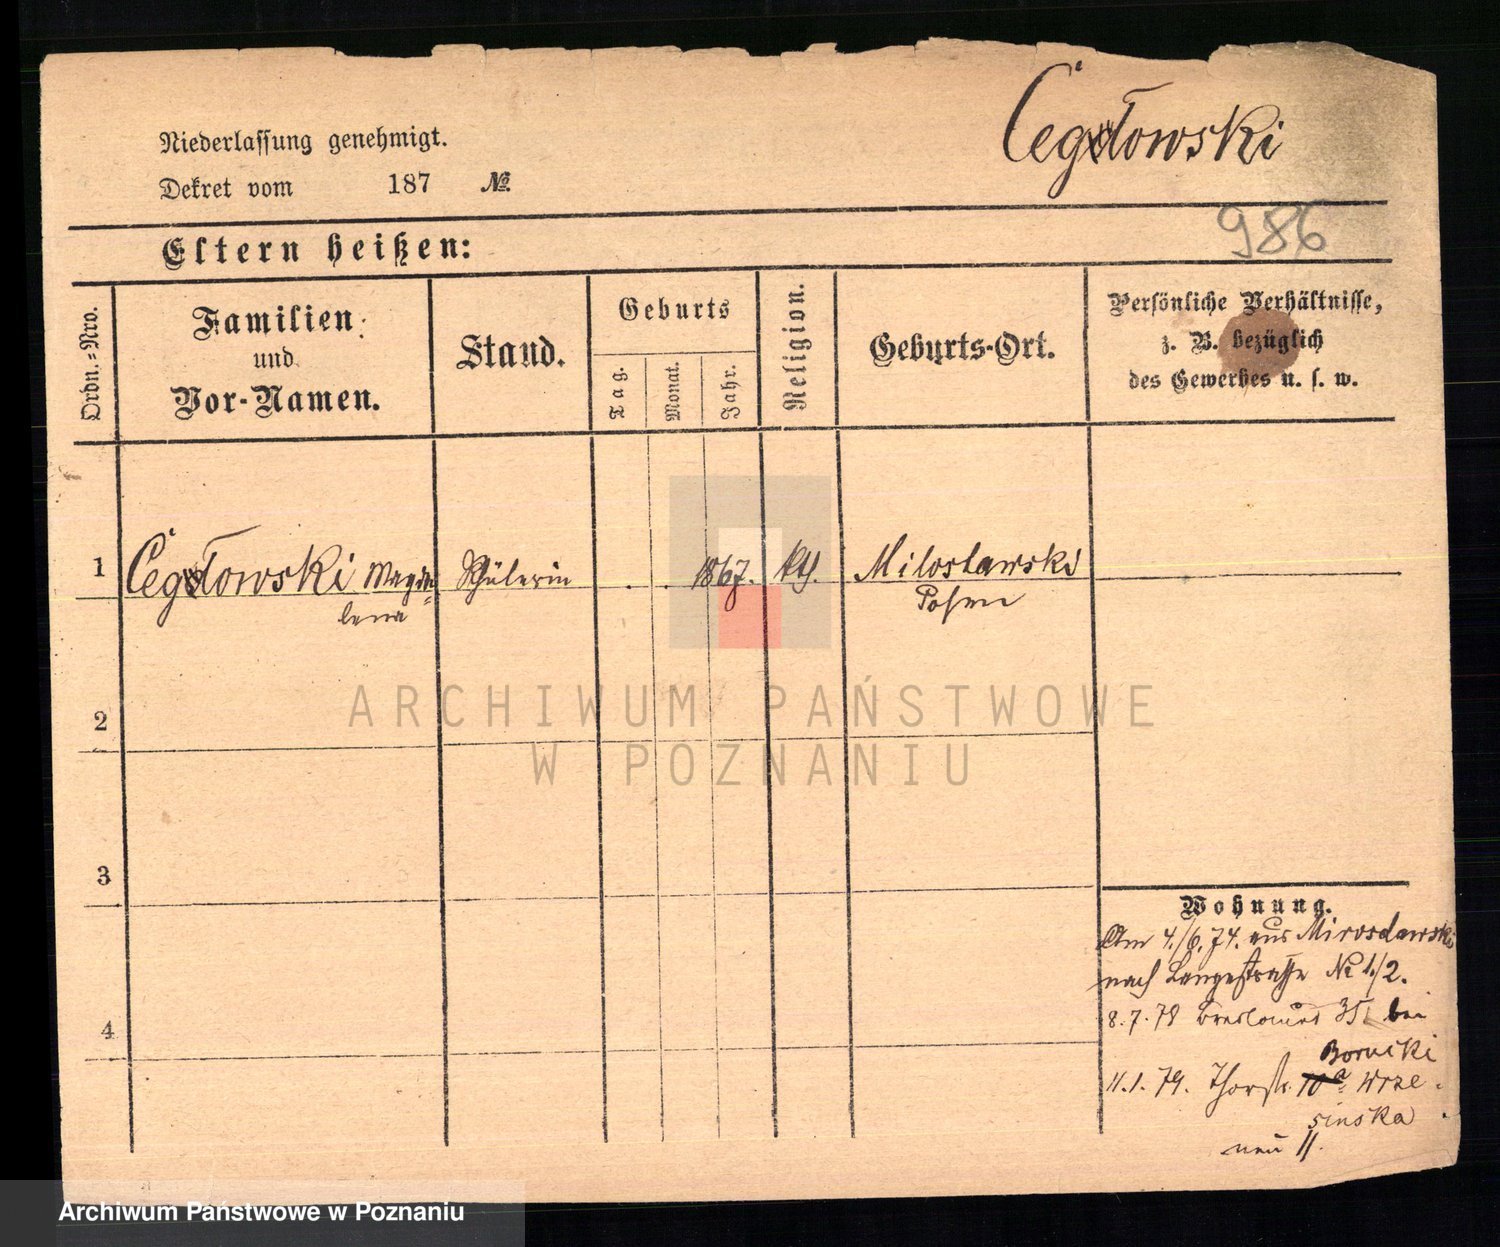 Cegłowski
Niederlassung genehmigt.
Dekret vom 187 №
986
Eltern heißen:
Ordn.=Nro.
Familien
und
Vor-Namen.
Stand.
Geburts
Tag.
Monat.
Jahr.
Religion.
Geburts-Ort.
Persönliche Verhältnisse,
z. B. bezüglich
des Gewerbes u. s. w.
1 Cegłowski Magda=
lena
Schülerin
1867. kth.
Miloslawski
Posen
2
3
4
Wohnung.
Am 4./6.74. aus Miroslawski
nach Langestraße № 1/2.
8.7.78 35 bei
Bornicki
11.1.79. Thorstr. 10a Wrze
sinska
neu 11.
ARCHIWUM PAŃSTWOWE
W POZNANIU
Archiwum Państwowe w Poznaniu